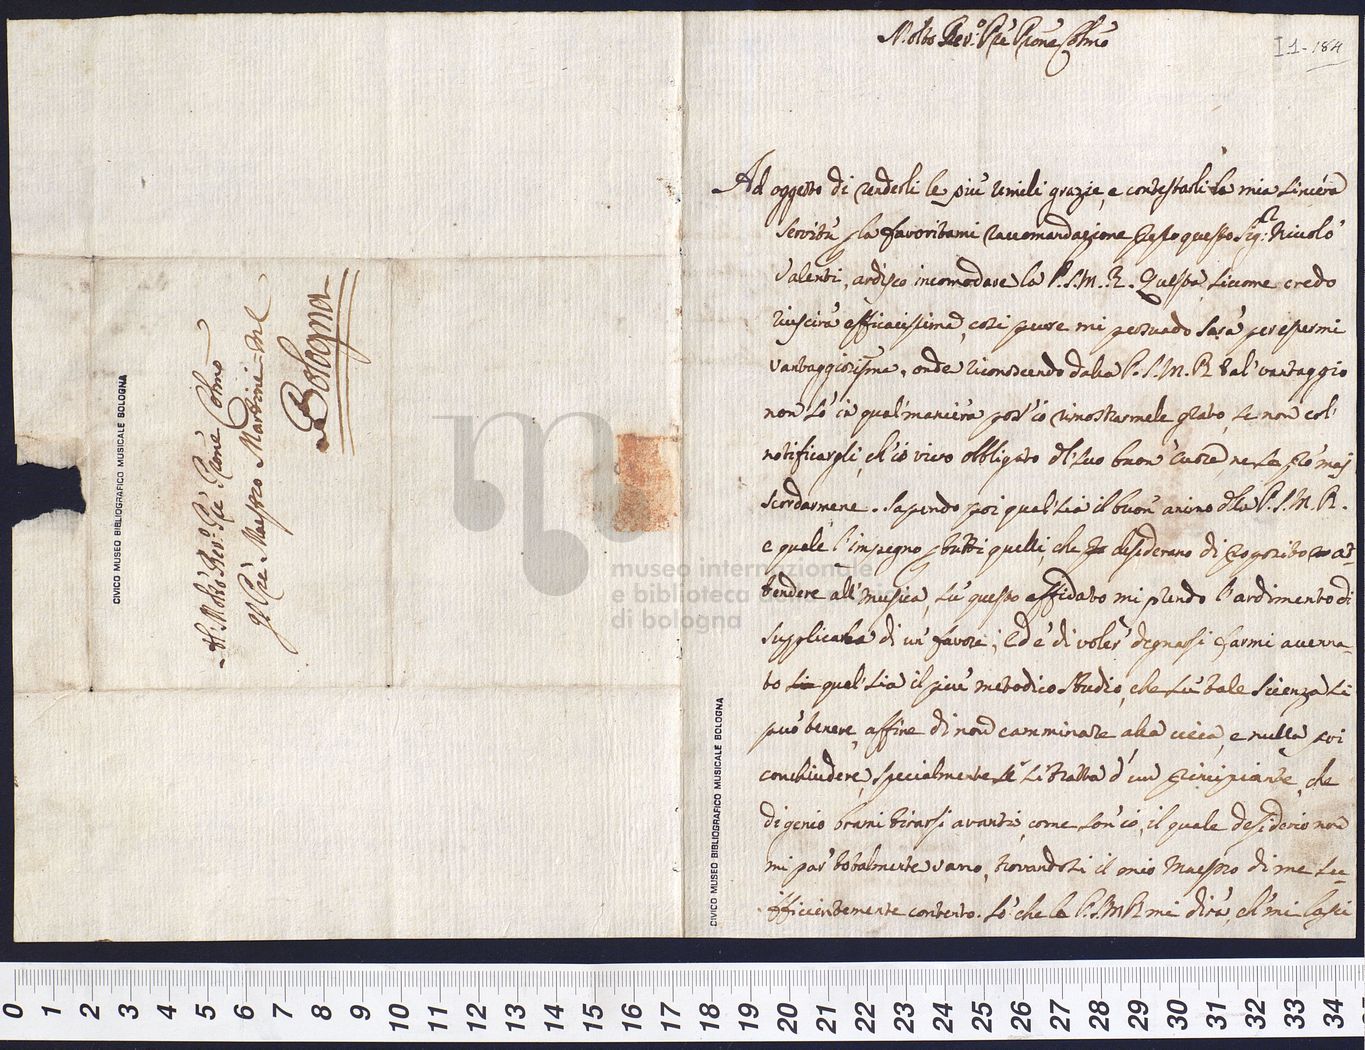 Molto Rev.º Pře Prone Colmo
I.1-184
Ad oggetto di renderli le più umili grazie, e contestarli la mia sincera
servitù p la favoritami raccomandazione presso questo Sig.r Niccolò
Valenti, ardisco incomodare la P.S.M.R. Questa, siccome credo
riuscirà efficacissima, così pure mi persuado sarà per essermi
vantaggiosissma, onde riconoscendo dalla P.S.M.R. tal' vantaggio
non sò in qual' maniera poss'io rimostrarmele grato, se non col'
notificargli, ch'io vivo obbligato al suo buon' cuore, ne sa prò mai
scordarmene. Sapendo poi qual' sia il buon' animo dlla P.S.M.R.
e quale l'impegno p tutti quelli, che desiderano di proposito at=
tendere all' musica, sù questo affidato mi prendo l'ardimento di
supplicarla di un' favore; ed è di voler' degnarsi farmi avvisa=
to qual' sia il più metodico studio, che sù tale scienza si
può tenere, affine di non camminare alla cieca, e nulla poi
conchiudere, specialmente se si tratta d'un principiante, che
di genio brami tirarsi avanti, come son' io, il quale desiderio non
mi par' totalmente vano, trovandosi il mio Maestro di me su=
fficientemente contento. Sò che la P.S.M.R. mi dirà, ch' mi lasci
Al Molto Rev.º Pře Prone Colmo
Il Pře Maestro Martini del
Bologna
CIVICO MUSEO BIBLIOGRAFICO MUSICALE BOLOGNA
CIVICO MUSEO BIBLIOGRAFICO MUSICALE BOLOGNA
museo internazionale
e biblioteca della musica
di bologna
0 1 2 3 4 5 6 7 8 9 10 11 12 13 14 15 16 17 18 19 20 21 22 23 24 25 26 27 28 29 30 31 32 33 34